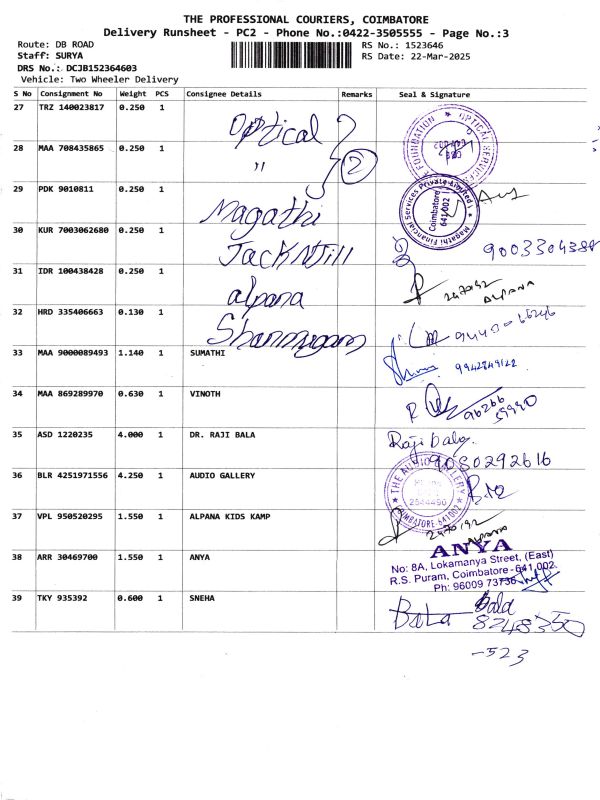 THE PROFESSIONAL COURIERS, COIMBATORE
Delivery Runsheet - PC2 - Phone No.:0422-3505555 - Page No.:3
Route: DB ROAD RS No.: 1523646
Staff: SURYA RS Date: 22-Mar-2025
DRS No.: DCJB152364603
Vehicle: Two Wheeler Delivery
S No Consignment No Weight PCS Consignee Details Remarks Seal & Signature
27 TRZ 140023817 0.250 1 Optical
28 MAA 708435865 0.250 1 " 2
29 PDK 9010811 0.250 1 Magathi
Magathi Financial Services Private Limited
Coimbatore 641 002
30 KUR 7003062680 0.250 1 Jack N Jill 9003304388
31 IDR 100438428 0.250 1 alpana 2470192 ALPANA
32 HRD 335406663 0.130 1 Shanmugam
33 MAA 9000089493 1.140 1 SUMATHI
34 MAA 869289970 0.630 1 VINOTH
35 ASD 1220235 4.000 1 DR. RAJI BALA Raji bala
9080292616
36 BLR 4251971556 4.250 1 AUDIO GALLERY
THE AUDIO GALLERY
2544490
COIMBATORE-641002
37 VPL 950520295 1.550 1 ALPANA KIDS KAMP 2470192 Alpana
38 ARR 30469700 1.550 1 ANYA
ANYA
No: 8A, Lokamanya Street, (East)
R.S. Puram, Coimbatore - 641 002.
Ph: 96009 73736
39 TKY 935392 0.600 1 SNEHA Bala Bala
8248350
-523